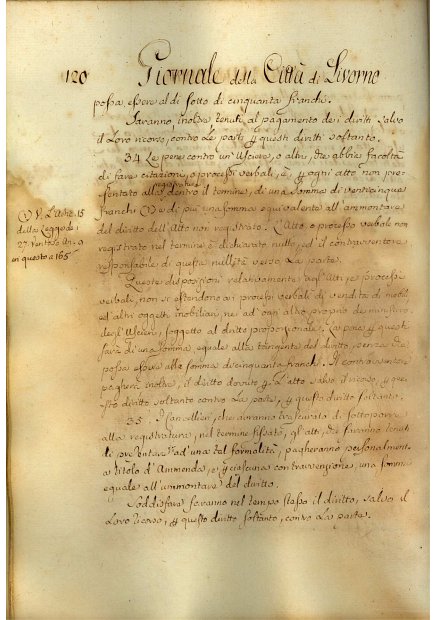 120 Giornale della Città di Livorno
possa essere al di sotto di cinquanta franchi.
Saranno inoltre tenuti al pagamento dei diritti salvo
il Loro ricorso, contro Le parti p questi diritti soltanto.
34. Le pene contro un' Usciere, o altri, che abbia facoltà
di fare citazioni, o processi verbali, è, p ogni atto non pre-
sentato alla registratura dentro il termine, di una somma di venticinque
franchi (1) e di più una somma equivalente all' ammontare
del diritto dell' Atto non registrato. L' Atto o processo verbale non
registrato nel termine è dichiarato nullo, ed il contravventore
responsabile di questa nullità verso La parte.
(1) V. L'Artic. 15
della Legge de i
27. Ventoso An. 9
in questo a 165
Queste disposizioni relativamente agl' Atti, e processi
verbali, non si estendono ai processi verbali di vendita di mobili,
ed altri oggetti mobiliari, nè ad ogni altro proprio de ministero
degl' Uscieri, soggetto al diritto proporzionale. La pena p questi
sarà di una somma, eguale alla tangente del diritto, senza che
possa essere alla somma di cinquanta franchi. Il contravventore
pagherà inoltre, il diritto dovuto p L' atto salvo il ricorso, p que-
sto diritto soltanto contro La parte, p questo diritto soltanto.
35. I Cancellieri, che avranno trascurato di sottoporre
alla registratura, nel termine fissato, gl' atti, che saranno tenuti
di presentare ad' una tal formalità, pagheranno personalment.
a titolo d' Ammenda, e p ciascuna contravvenzione, una somma
eguale all' ammontare del diritto.
Soddisfare saranno nel tempo stesso il diritto, salvo il
Loro ricorso, p questo diritto soltanto, contro La parte.